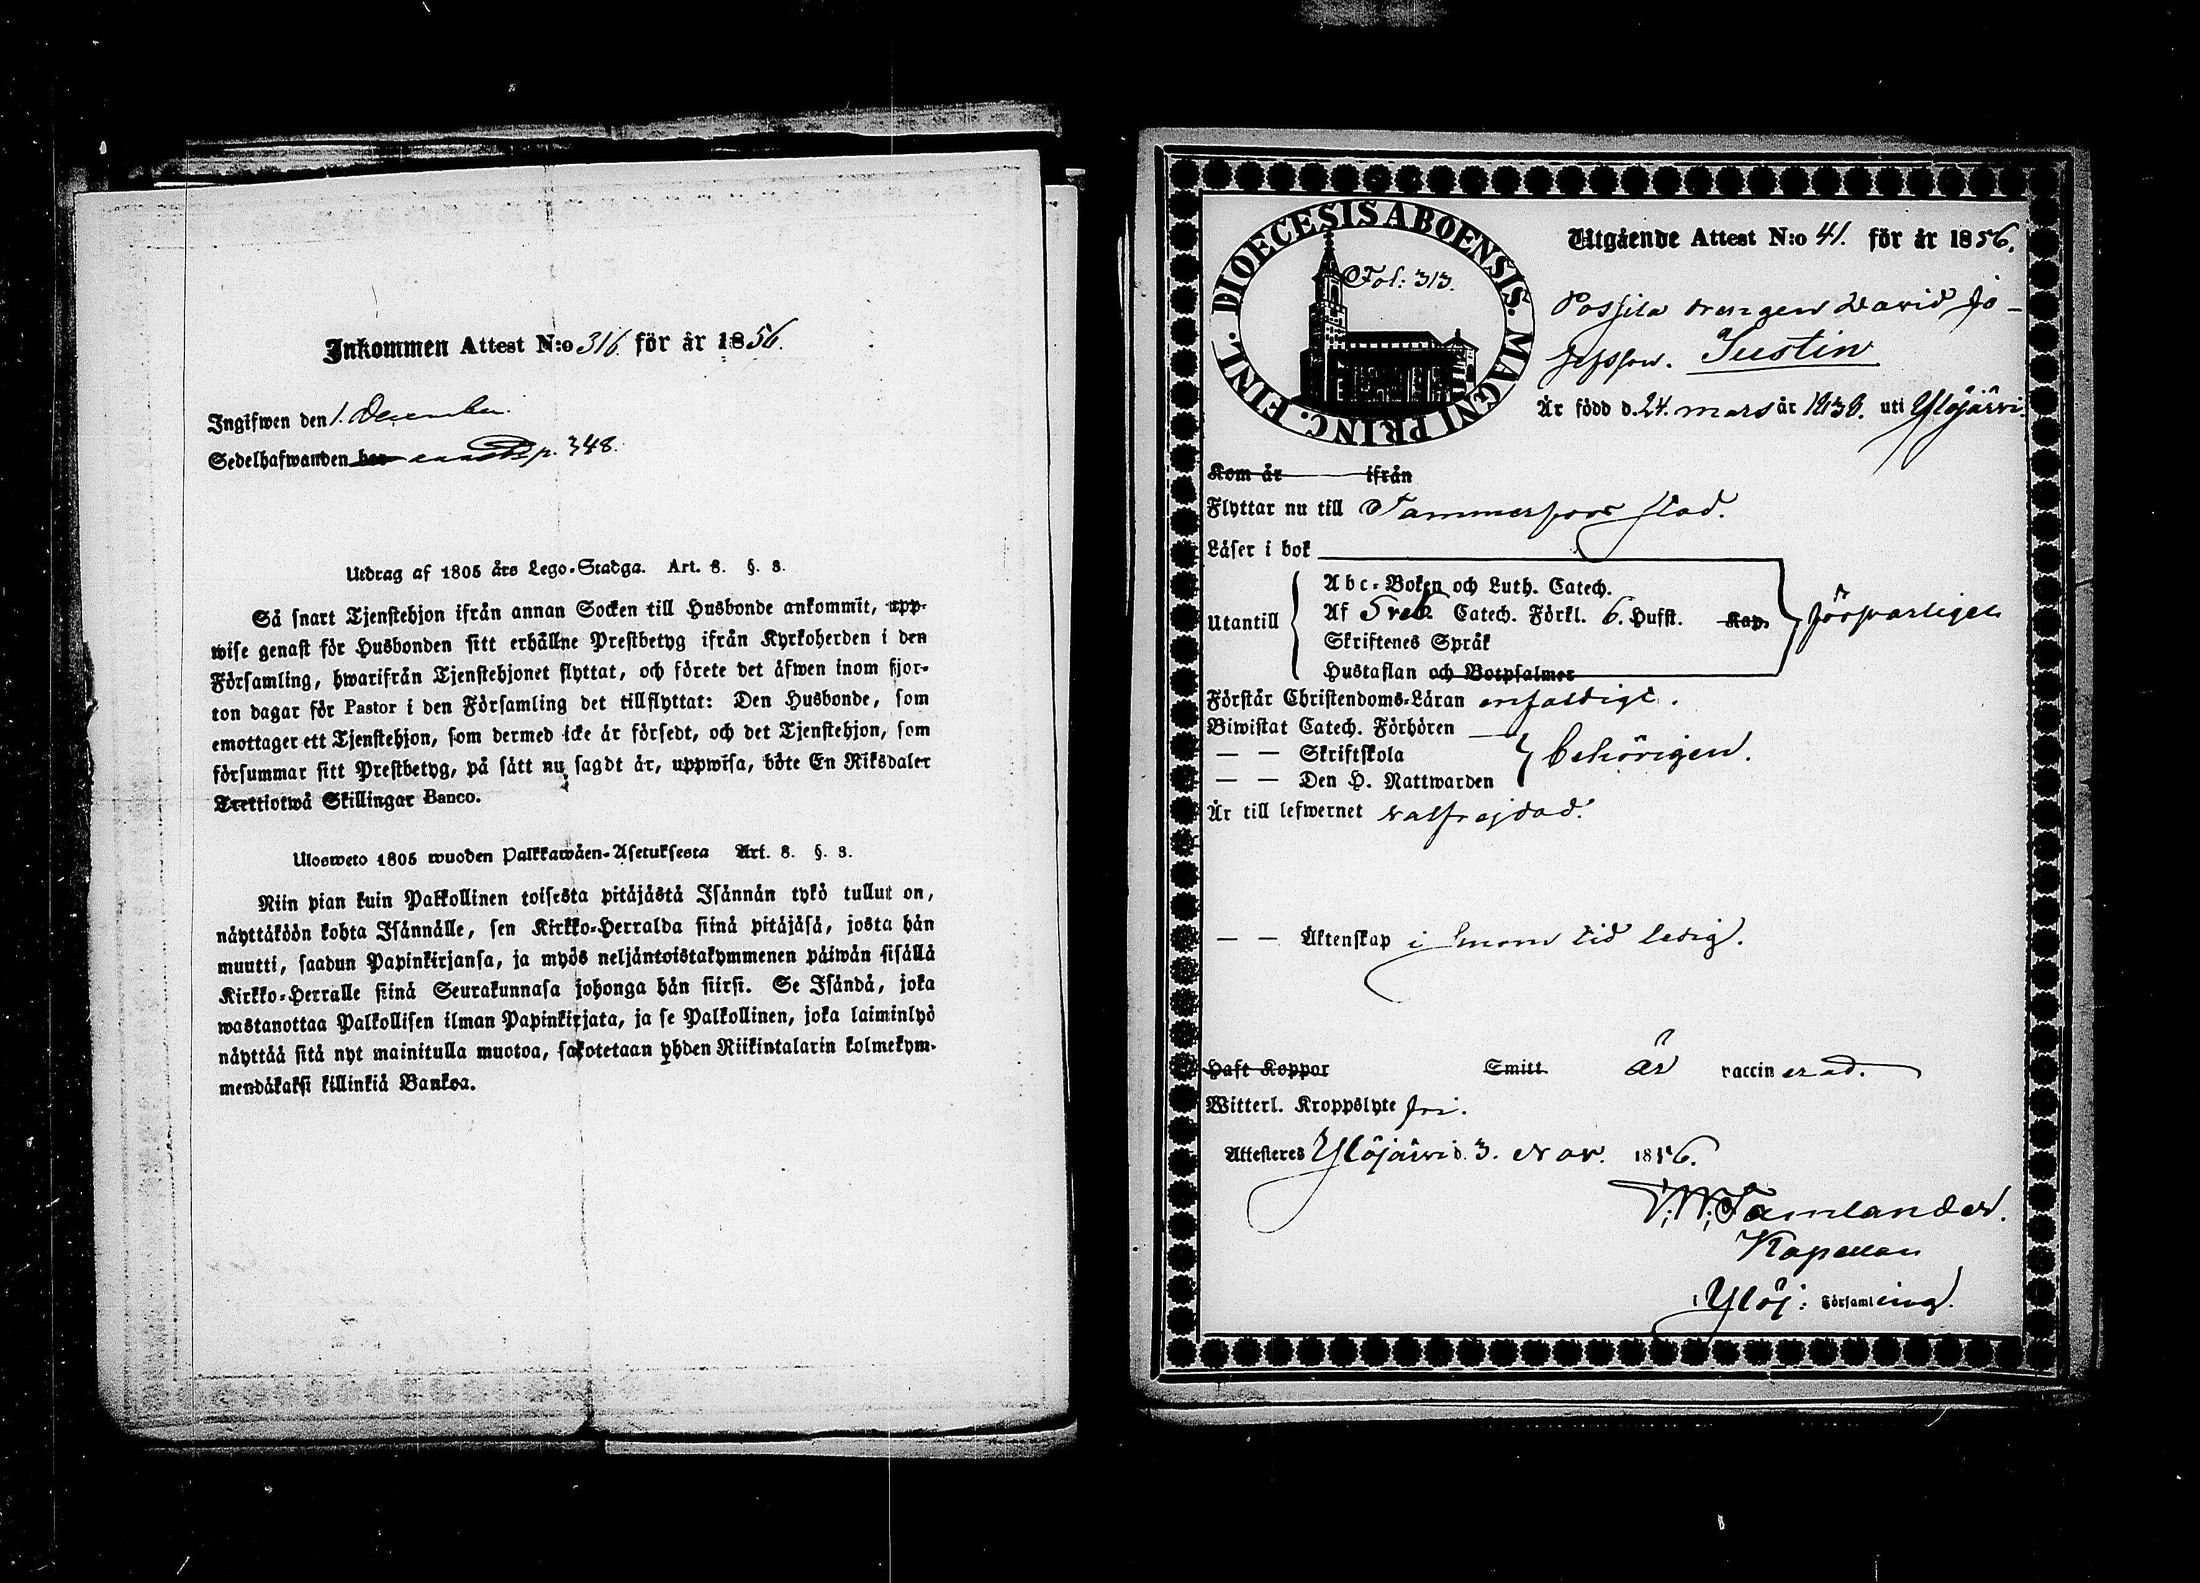 Inkommen Attest N:o 316. för år 1856.
Ingifwen den 1. December.
Sedelhafwanden p. 348.
Utdrag af 1805 års Lego-Stadga. Art. 8. §. 3.
Så snart Tjenstehjon ifrån annan Socken till Husbonde ankommit, upp-
wise genast för Husbonden sitt erhållne Prestbetyg ifrån Kyrkoherden i den
Församling, hwarifrån Tjenstehjonet flyttat, och förete det äfwen inom fjor-
ton dagar för Pastor i den Församling det tillflyttat: Den Husbonde, som
emottager ett Tjenstehjon, som dermed icke är försedt, och det Tjenstehjon, som
försummar sitt Prestbetyg, på sätt nu sagdt är, uppwisa, böte En Riksdaler
Trettiotwå Skillingar Banco.
Ulosweto 1805 wuoden Palkkawäen-Asetuksesta Art. 8. §. 3.
Niin pian kuin Palkollinen toisesta pitäjästä Isännän tykö tullut on,
näyttäköön kohta Isännälle, sen Kirkko-Herralda siinä pitäjäsä, josta hän
muutti, saadun Papinkirjansa, ja myös neljäntoistakymmenen päiwän sisällä
Kirkko-Herralle siinä Seurakunnasa johonga hän siirsi. Se Isändä, joka
wastanottaa Palkollisen ilman Papinkirjata, ja se Palkollinen, joka laiminlyö
näyttää sitä nyt mainitulla muotoa, sakotetaan yhden Riikintalarin kolmekym-
mendäkaksi killinkiä Bankoa.
DIOECESIS ABOENSIS. MAGNI PRINC. FINL.
Fol: 313.
Utgående Attest N:o 41. för år 1856.
Possila drengen David Jo-
sefsson. Justin
Är född d. 24. mars år 1836. uti Ylöjärvi
Kom år ifrån
Flyttar nu till Tammerfors stad.
Läser i bok
Utantill
Abc-Boken och Luth. Catech.
Af Sveb. Catech. Förkl. 6. Hufst. Kap.
Skriftenes Språk
Hustaflan och Botpsalmer
försvarligen
Förstår Christendoms-Läran enfaldigt.
Biwistat Catech. Förhören
— — Skriftskola
— — Den H. Nattwarden
behörigen.
Är till lefwernet välfrejdad.
— — Äktenskap i ledig.
Haft Koppor Smitt är vaccinerad.
Witterl. Kroppslyte fri.
Attesteres Ylöjärvi d. 3. Nov. 1856.
Tamlander.
Kapellan
i Ylöj: Församling.